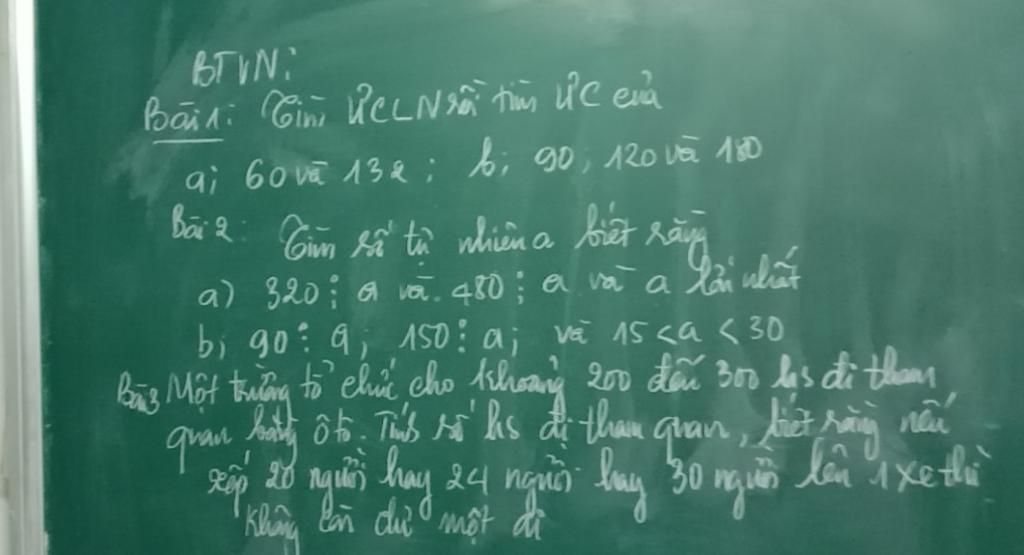 BTVN:
Bài 1: Tìm ƯCLN rồi tìm ƯC của
a; 60 và 132; b; 90; 120 và 180
Bài 2: Tìm số tự nhiên a biết rằng
a) 320 ⋮ a và 480 ⋮ a và a lớn nhất
b; 90 ⋮ a; 150 ⋮ a; và 15 < a < 30
Bài 3 Một trường tổ chức cho khoảng 200 đến 300 hs đi tham
quan bằng ô tô. Tính số hs đi tham quan, biết rằng nếu
xếp 20 người hay 24 người hay 30 người lên 1 xe thì
không còn dư một ai